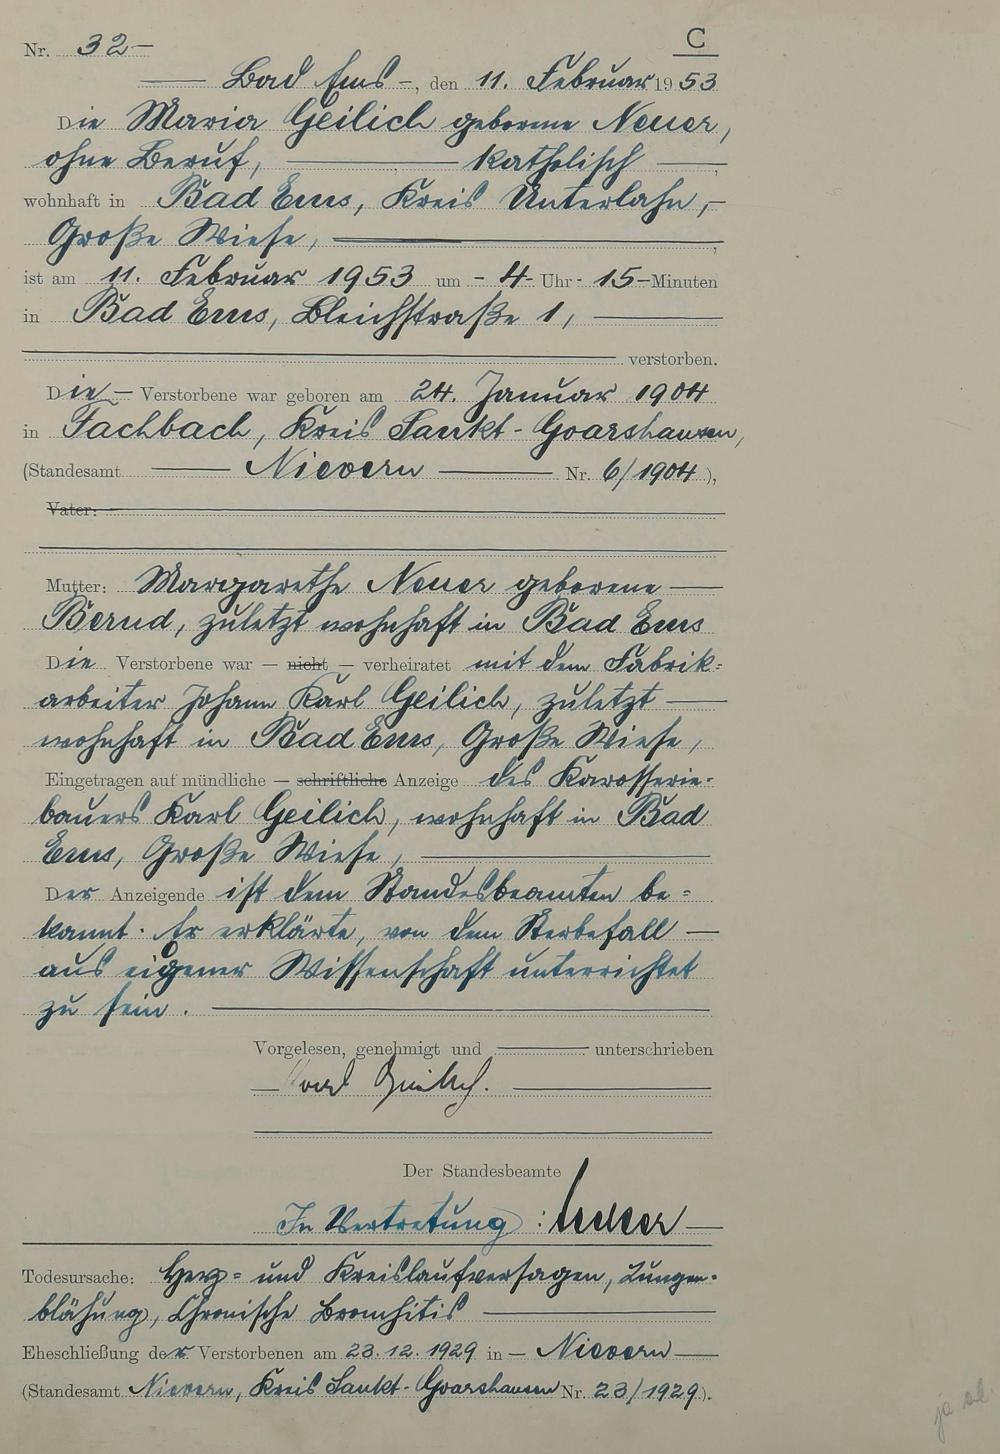 Nr. 32 C
Bad Ems, den 11. Februar 1953
Die Maria Geilich geborene Neuer,
ohne Beruf, katholisch,
wohnhaft in Bad Ems, Kreis Unterlahn,
Große Wiese,
ist am 11. Februar 1953 um 4 Uhr 15 Minuten
in Bad Ems, Bleichstraße 1,
verstorben.
Die Verstorbene war geboren am 24. Januar 1904
in Fachbach, Kreis Sankt-Goarshausen,
(Standesamt Nievern Nr. 6/1904),
Vater:
Mutter: Margarethe Neuer geborene
Bernd, zuletzt wohnhaft in Bad Ems
Die Verstorbene war — nicht — verheiratet mit dem Fabrik-
arbeiter Johann Karl Geilich, zuletzt
wohnhaft in Bad Ems, Große Wiese,
Eingetragen auf mündliche — schriftliche Anzeige des Karosserie-
bauers Karl Geilich, wohnhaft in Bad
Ems, Große Wiese,
Der Anzeigende ist dem Standesbeamten be-
kannt. Er erklärte, von dem Sterbefall
aus eigener Wissenschaft unterrichtet
zu sein.
Vorgelesen, genehmigt und unterschrieben
Karl Geilich.
Der Standesbeamte
In Vertretung:
Todesursache: Herz- und Kreislaufversagen, Lungen-
blähung, Chronische Bronchitis
Eheschließung der Verstorbenen am 23.12.1929 in Nievern
(Standesamt Nievern, Kreis Sankt-Goarshausen Nr. 23/1929).